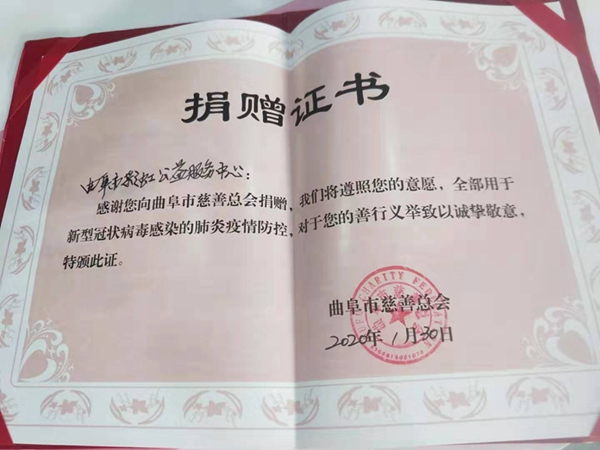 捐赠证书
曲阜市彩虹公益服务中心：
感谢您向曲阜市慈善总会捐赠，我们将遵照您的意愿，全部用于
新型冠状病毒感染的肺炎疫情防控，对于您的善行义举致以诚挚敬意，
特颁此证。
CHARITY FEDERATION
曲阜市慈善总会
2020年1月30日